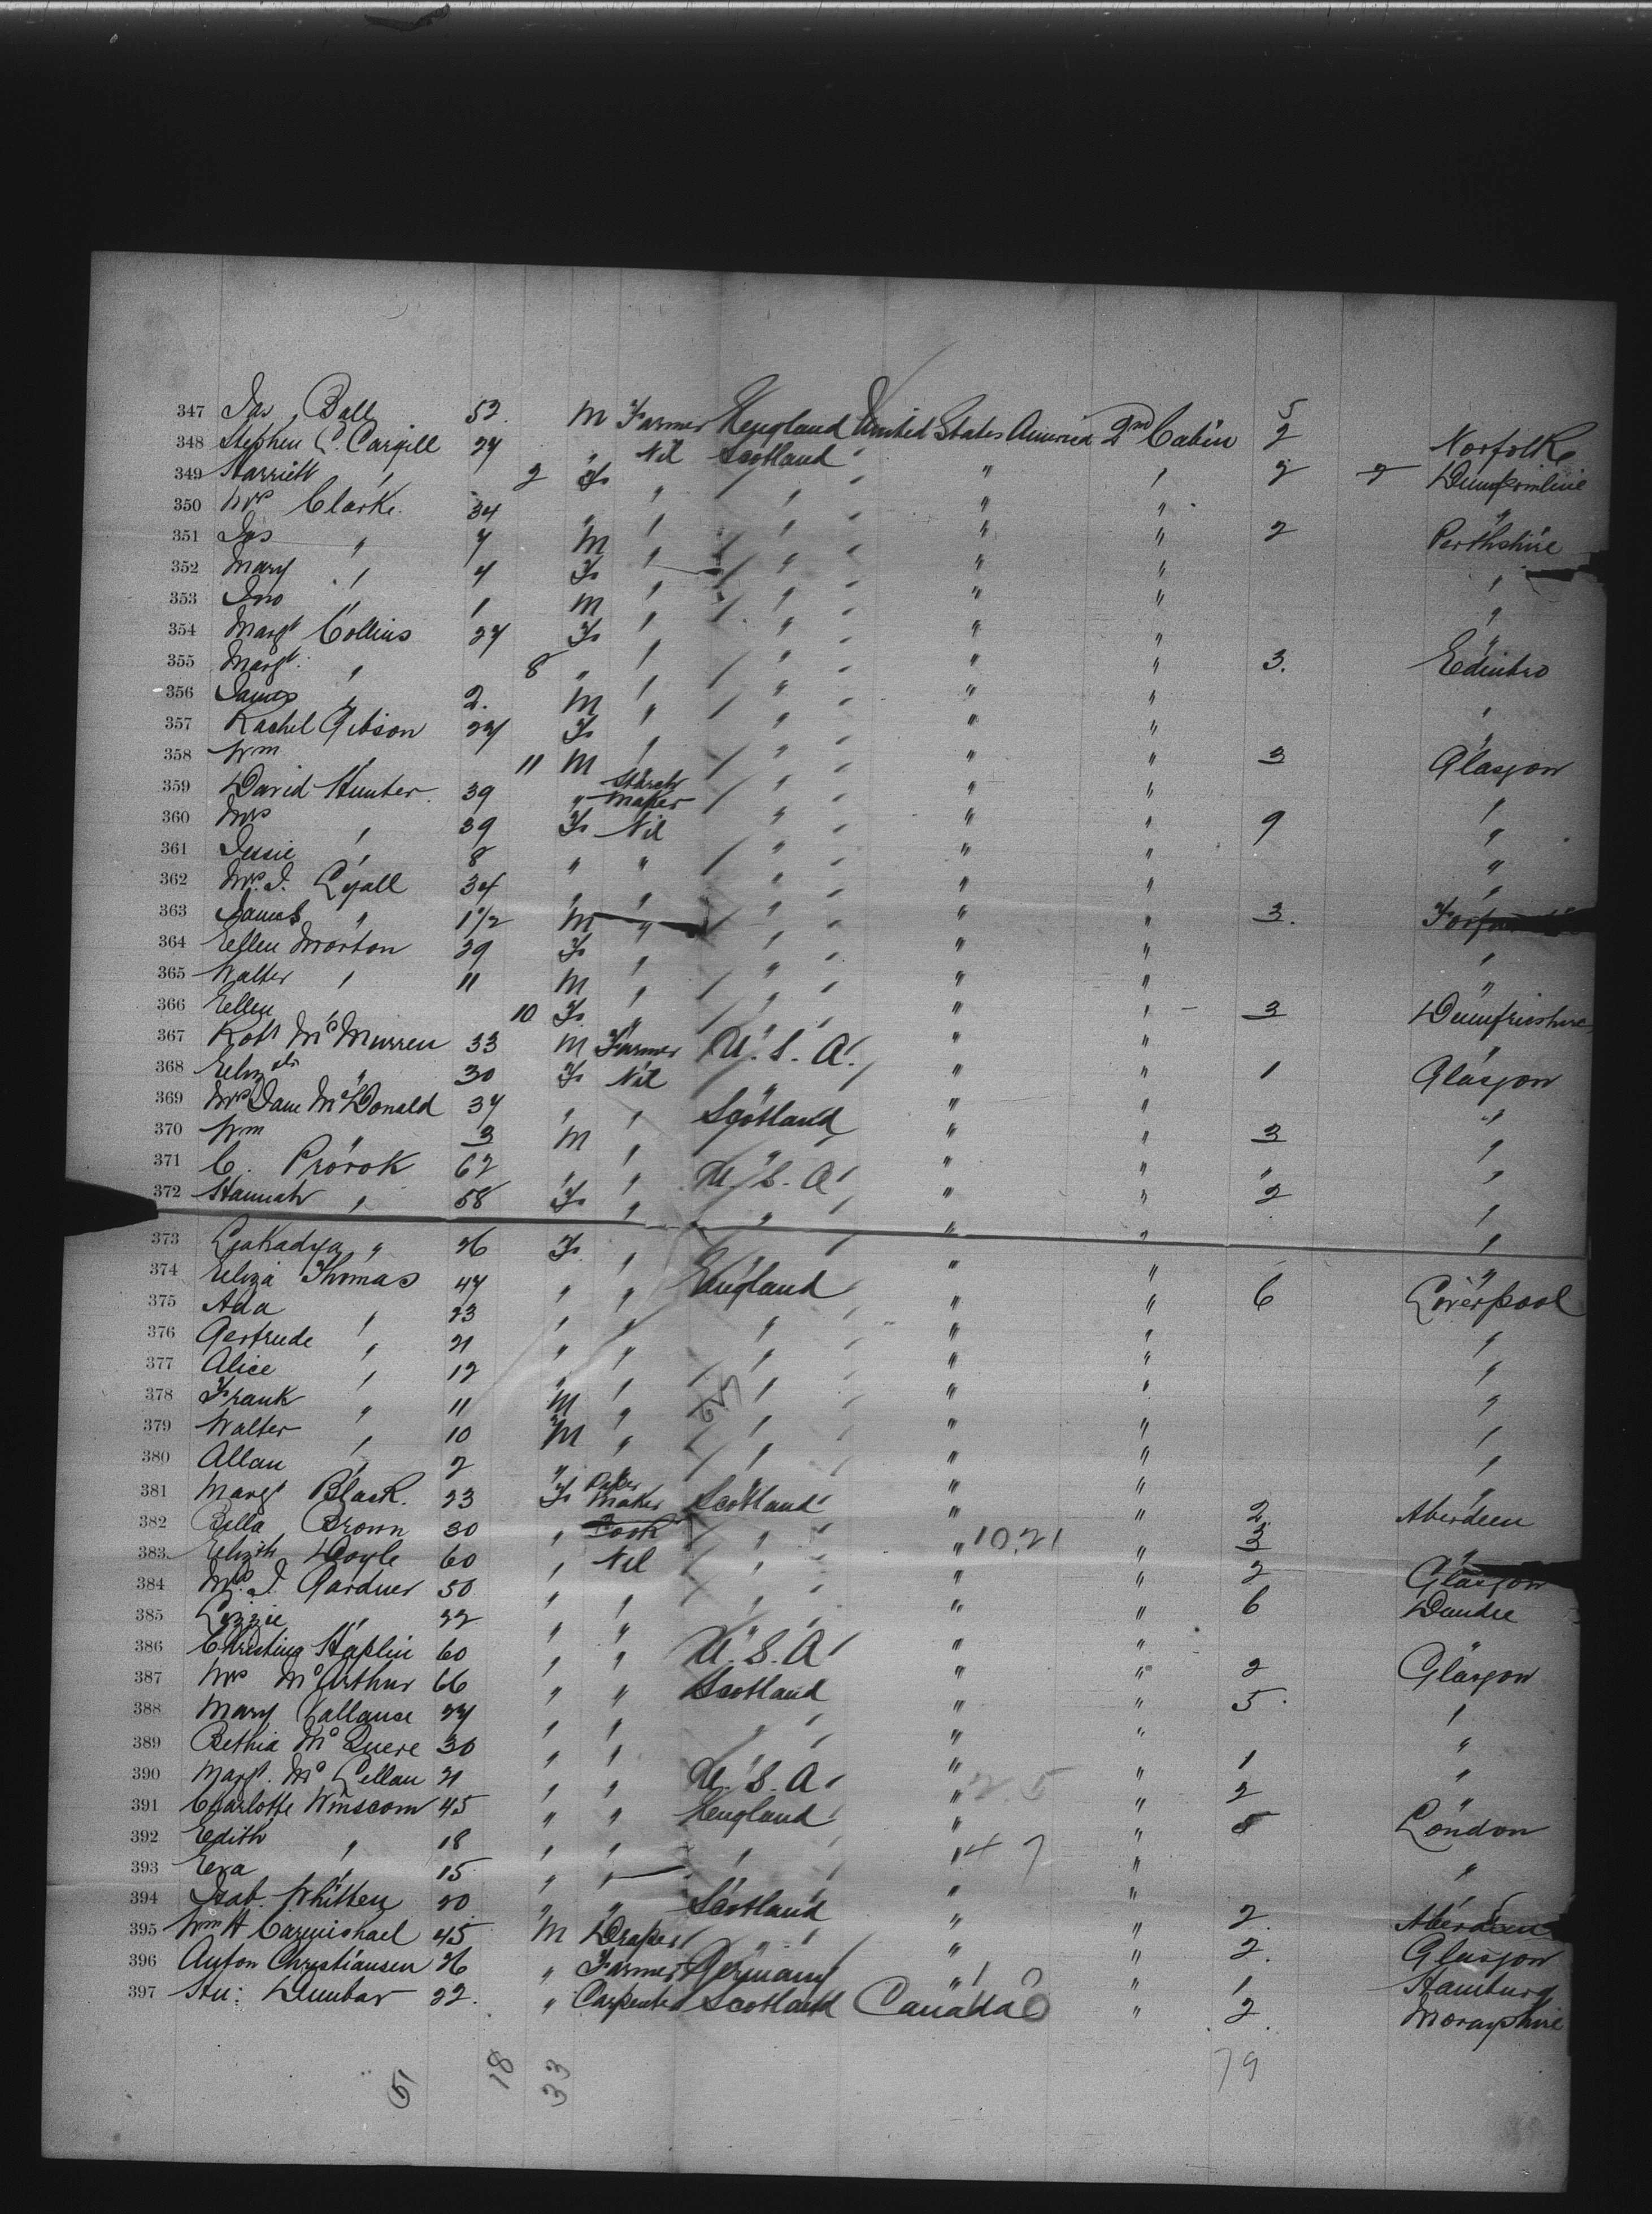 347 Jas Ball 52. M Farmer England United States America 2nd Cabin 5 Norfolk
348 Stephen C. Cargill 27 " Nil Scotland " " 2 Dumfermline
349 Harriett " 2 F " " " " 2 2 "
350 Mrs Clarke. 34 " " " " " 2 Perthshire
351 Jas " 7 M " " " " "
352 Mary " 4 F " " " " "
353 Jno " 1 M " " " " "
354 Margt Collins 27 F " " " " 3. Edinbro
355 Margt. " 8 " " " " " "
356 James " 2. M " " " " "
357 Rachel Gibson 27 F " " " " 3 Glasgow
358 Wm " 11 M " " " " "
359 David Hunter. 39 " Starch Maker " " " 9 "
360 Mrs " 39 F Nil " " " "
361 Jessie " 8 " " " " " "
362 Mrs. J. Lyall 34 " " " " " 3.
363 James " 1 1/2 M " " " " "
364 Ellen Morton 39 F " " " " 3 Dumfrieshire
365 Walter " 11 M " " " "
366 Ellen " 10 F " " " "
367 Robt McMurren 33 M Farmer U.S.A. " " 1 Glasgow
368 Elizth " 30 F Nil " " " "
369 Mrs Jane McDonald 37 " " Scotland " " 3 "
370 Wm " 3 M " " " " "
371 C. Prorok 62 " " U.S.A " " 2 "
372 Hannah " 58 F " " " " "
373 " 26 F " " " " "
374 Eliza Thomas 47 " " England " " 6 Liverpool
375 Ada " 23 " " " " " "
376 Gertrude " 21 " " " " " "
377 Alice " 12 " " " " " "
378 Frank " 11 M " " " " "
379 Walter " 10 M " " " " "
380 Allan " 2 " " " " " "
381 Margt Black. 23 F Maker Scotland " " 2 Aberdeen
382 Bella Brown 30 " Cook " " 10,21 " 3 "
383 Elizth Doyle 60 " Nil " " " 2 Glasgow
384 Mrs. J. Gardner 50 " " " " " 6 Dundee
385 Lizzie " 22 " " " " "
386 Christina Haplin 60 " " U.S.A " " 2 Glasgow
387 Mrs McArthur 66 " " Scotland " " 5. "
388 Mary Vallance 27 " " " " " "
389 Bethia McQuere 30 " " " " " 1 "
390 Margt. McLellan 21 " " U.S.A " 25 " 2
391 Charlotte Winscom 45 " " England " " 5 London
392 Edith " 18 " " " " 47 " "
393 Eva " 15 " " " " "
394 Isab. Whitten 20 " " Scotland " " 2. Aberdeen
395 Wm H Carmichael 45 M Draper " " " 2. Glasgow
396 Anton Christiansen 26 " Farmer Germany " " 1 Hamburg
397 Hu: Dunbar 22. " Carpenter Scotland Canada " 2. Morayshire
51 18 33 79